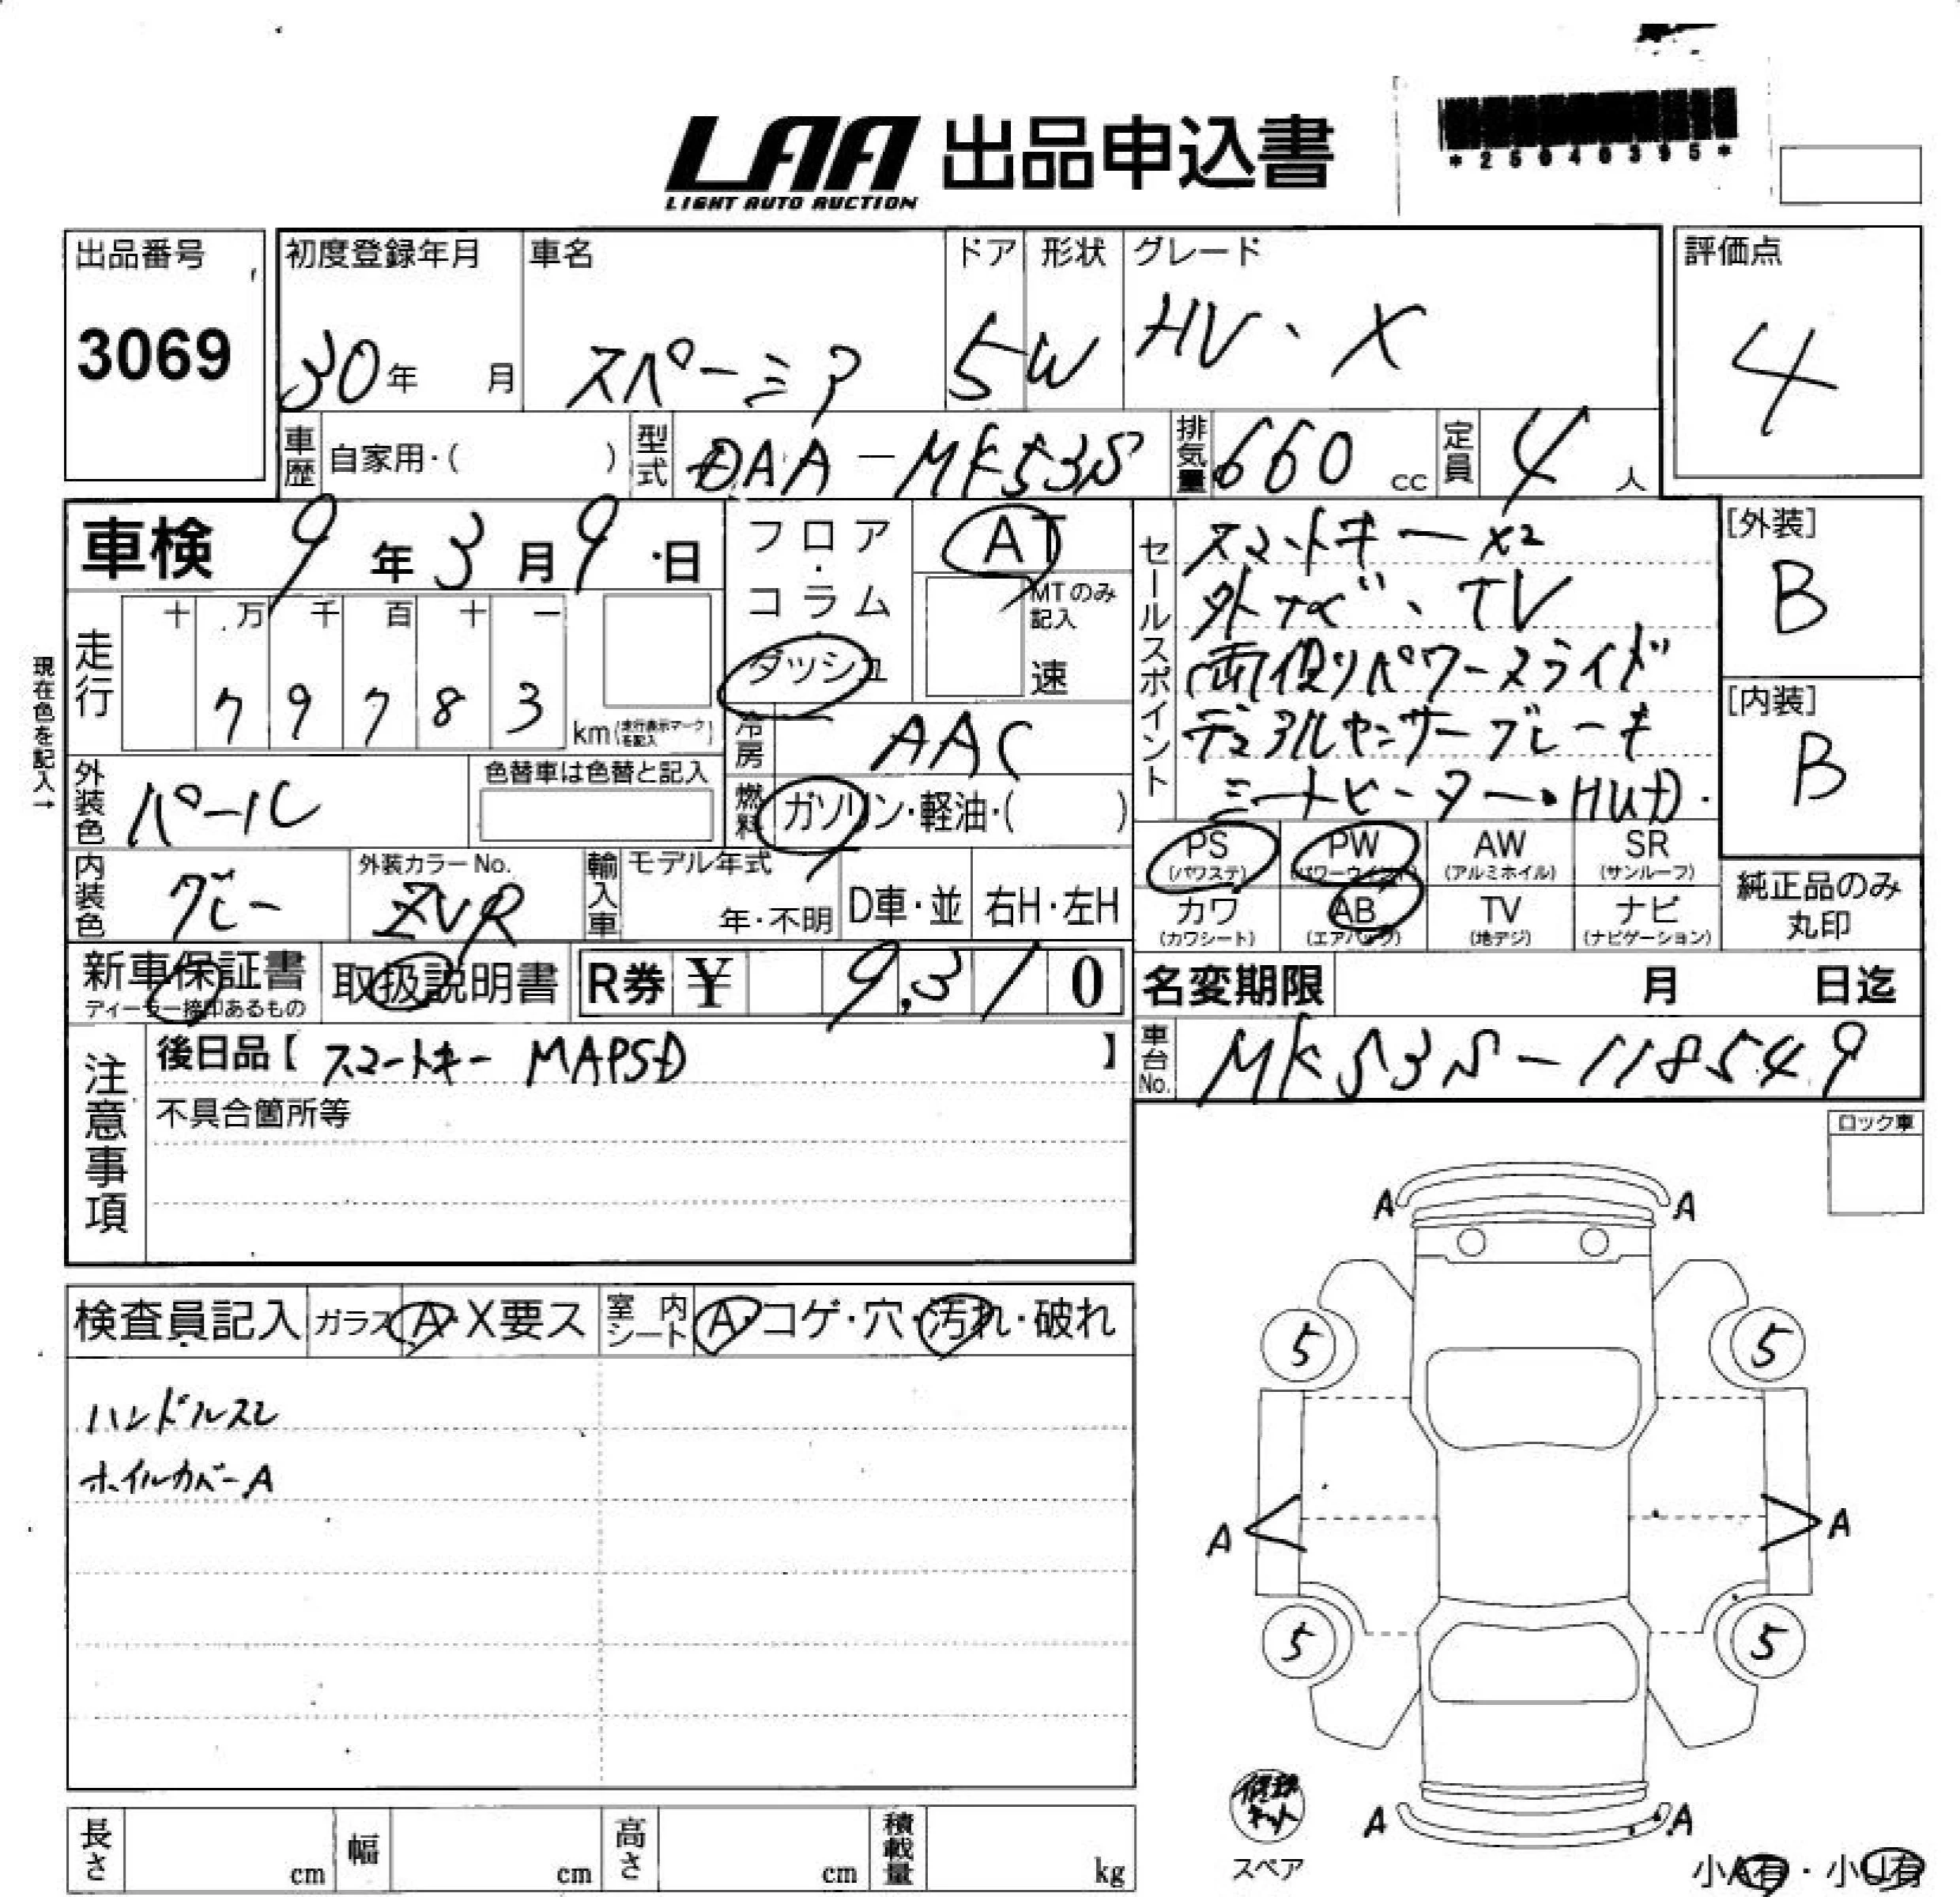 LAA 出品申込書
LIGHT AUTO AUCTION
*25040395*
出品番号
3069
初度登録年月
30年 月
車名
スペーシア
ドア
5
形状
W
グレード
HV、X
評価点
4
車歴 自家用・( )
型式 DAA-MK53S
排気量 660 cc
定員 4 人
車検 9年3月9日
走行 十 万 千 百 十 一
7 9 7 8 3 km(走行表示マークを記入)
現在色を記入→
外装色 パール
色替車は色替と記入
内装色 グレー
外装カラーNo.
ZVR
フロア・コラム・ダッシュ
AT
MTのみ記入
速
冷房 AAC
燃料 ガソリン・軽油・( )
輸入車 モデル年式
年・不明
D車・並 右H・左H
セールスポイント
スマートキー x2
外ナビ、TV
両側パワースライド
デュアルセンサーブレーキ
シートヒーター・HUD.
[外装]
B
[内装]
B
PS (パワステ)
PW (パワーウインド)
AW (アルミホイル)
SR (サンルーフ)
カワ (カワシート)
AB (エアバッグ)
TV (地デジ)
ナビ (ナビゲーション)
純正品のみ丸印
新車保証書
ディーラー捺印あるもの
取扱説明書
R券 ¥ 9,310
名変期限 月 日迄
車台No. MK53S-118549
注意事項
後日品【 スマートキー MAPSD 】
不具合箇所等
ロック車
検査員記入 ガラス A・X要ス 室内シート A・コゲ・穴・汚れ・破れ
ハンドルスレ
ホイルカバーA
A A
5 5
A A
5 5
A A
修理キット
スペア
小A有・小U有
長さ cm 幅 cm 高さ cm 積載量 kg